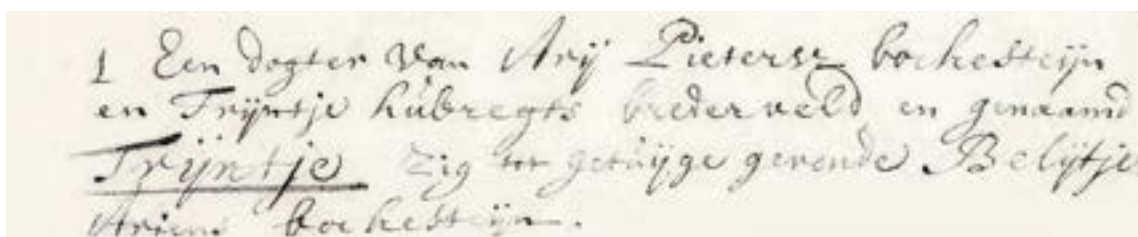 1 Een dogter van Arij Pietersz bockesteijn
en Trijntje hubregts brederveld en genaamd
Trijntje Zig tot getuijge gevende Belijtje
Ariens bockesteijn.